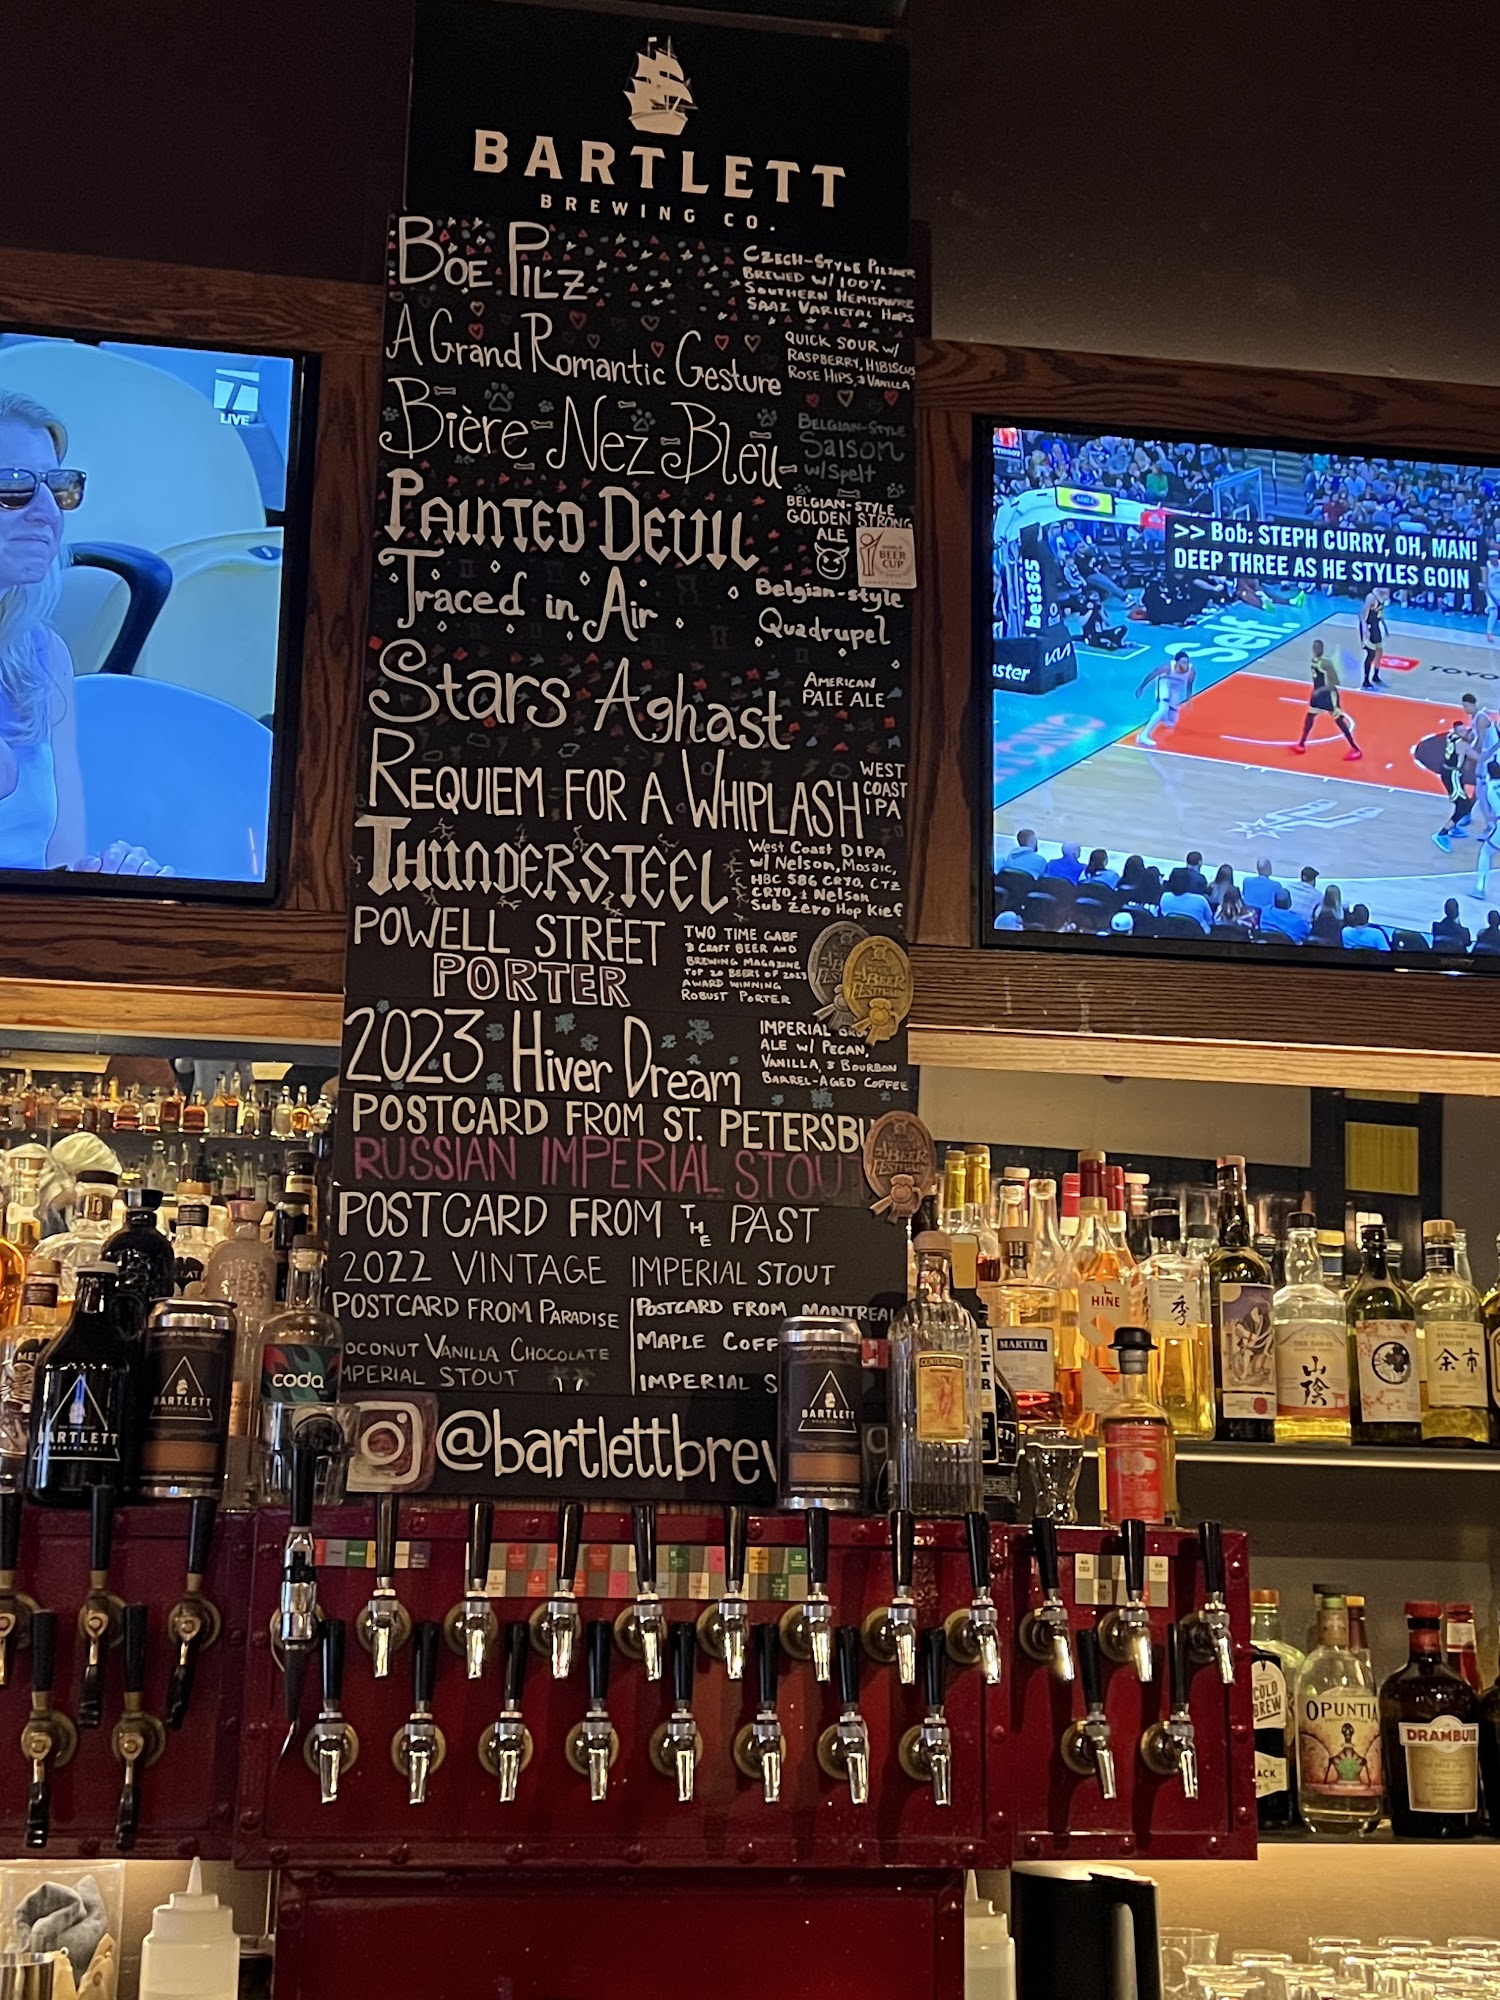 BARTLETT
BREWING CO.
BOE PILZ
CZECH-STYLE PILSNER
BREWED W/ 100%
SOUTHERN HEMISPHERE
SAAZ VARIETAL HOPS
A Grand Romantic Gesture
QUICK SOUR W/
RASPBERRY, HIBISCUS
ROSE HIPS, & VANILLA
Bière Nez Bleu
BELGIAN-STYLE
Saison
w/Spelt
PAINTED DEVIL
BELGIAN-STYLE
GOLDEN STRONG
ALE
WORLD
BEER
CUP
Traced in Air
Belgian-style
Quadrupel
Stars Aghast
AMERICAN
PALE ALE
REQUIEM FOR A WHIPLASH
WEST
COAST
IPA
THUNDERSTEEL
West Coast DIPA
w/ Nelson, Mosaic,
HBC 586 CRYO, CTZ
CRYO, & Nelson
Sub Zero Hop Kief
POWELL STREET
PORTER
TWO TIME GABF
& CRAFT BEER AND
BREWING MAGAZINE
TOP 20 BEERS OF 2023
AWARD WINNING
ROBUST PORTER
2023 Hiver Dream
IMPERIAL
ALE W/ PECAN,
VANILLA, & BOURBON
BARREL-AGED COFFEE
POSTCARD FROM ST. PETERSBU
RUSSIAN IMPERIAL STOU
POSTCARD FROM THE PAST
2022 VINTAGE IMPERIAL STOUT
POSTCARD FROM PARADISE
OCONUT VANILLA CHOCOLATE
MPERIAL STOUT
POSTCARD FROM MONTREAL
MAPLE COFF
IMPERIAL S
@bartlettbrew
LIVE
>> Bob: STEPH CURRY, OH, MAN!
DEEP THREE AS HE STYLES GOIN
bet365
Self.
KIA
ster
TOYO
BARTLETT
BARTLETT
coda
BARTLETT
CENTENARIO
MARTELL
HINE
季
山陰
余市
COLD
BREW
ACK
OPUNTIA
DRAMBUIE